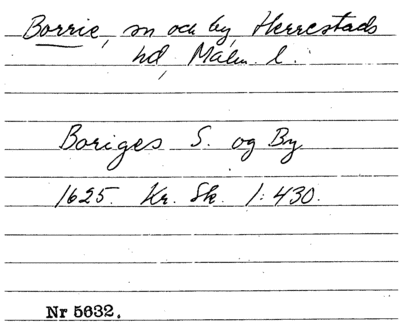 Borrie, sn och by, Herrestads
hd, Malm. l.
Boriges S. og By
1625. Kr. Sk. 1:430.
Nr 5632.